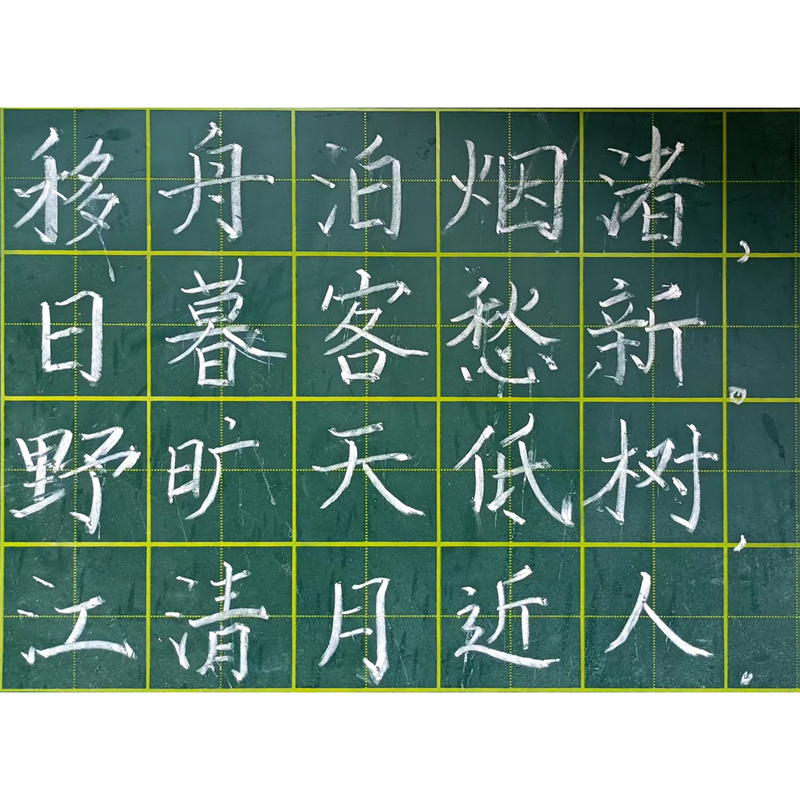 移舟泊烟渚,
日暮客愁新。
野旷天低树,
江清月近人。